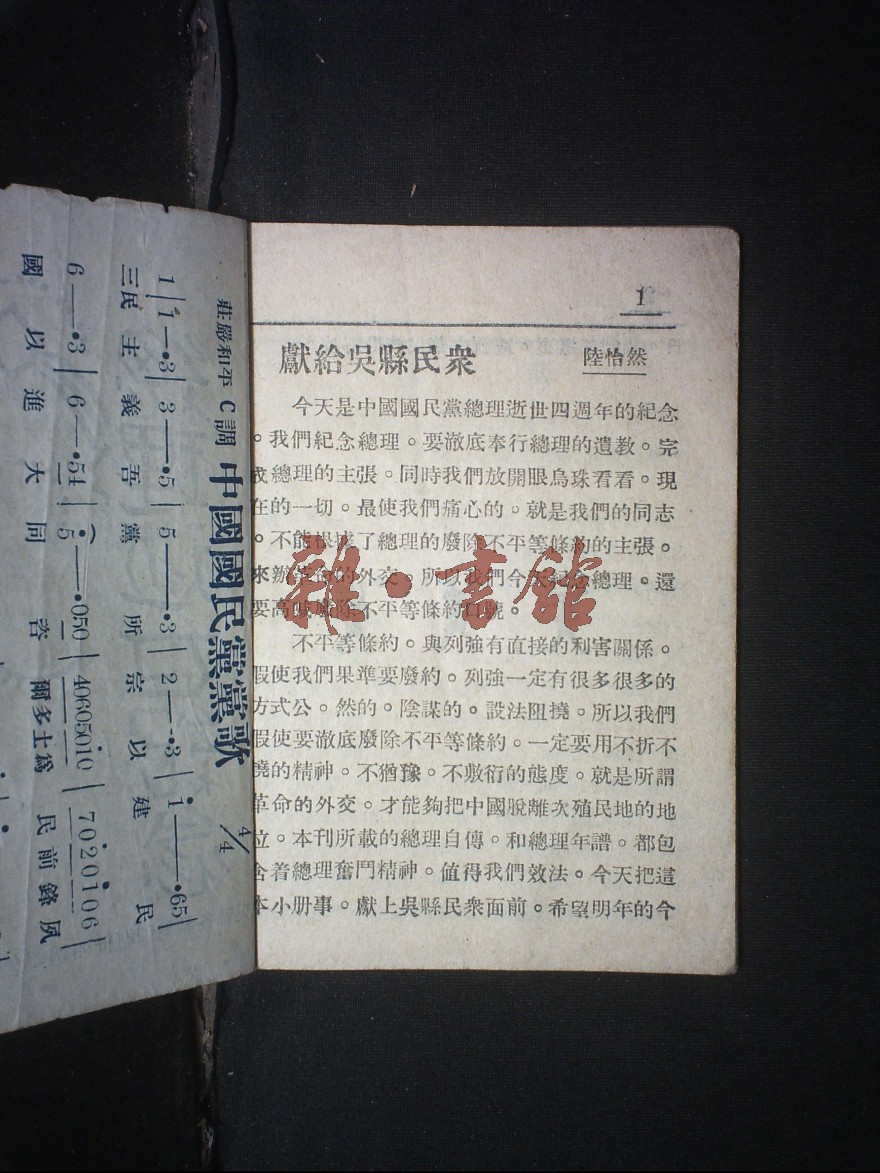 1
獻給吳縣民衆 陸怡然
今天是中國國民黨總理逝世四週年的紀念
。我們紀念總理。要澈底奉行總理的遺教。完
成總理的主張。同時我們放開眼烏珠看看。現
在的一切。最使我們痛心的。就是我們的同志
。不能根據了總理的廢除不平等條約的主張。
來辦革命的外交。所以我們今天紀念總理。還
要高喊廢除不平等條約口號。
不平等條約。與列強有直接的利害關係。
假使我們果準要廢約。列強一定有很多很多的
方式公。然的。陰謀的。設法阻撓。所以我們
假使要澈底廢除不平等條約。一定要用不折不
撓的精神。不猶豫。不敷衍的態度。就是所謂
革命的外交。才能夠把中國脫離次殖民地的地
位。本刊所載的總理自傳。和總理年譜。都包
含着總理奮鬥精神。值得我們效法。今天把這
本小册事。獻上吳縣民衆面前。希望明年的今
莊嚴和平 C調 中國國民黨黨歌 4/4
1 | 1 — •3 | 3 —— •5 | 5 —— •3 | 2 — •3 | i —— •65 |
三民主義吾黨所宗以建民
6 — •3 | 6 — •54 | 5 —— •050 | 40605010 | 7020106 |
國以進大同咨爾多士爲民前鋒夙
雜·書館